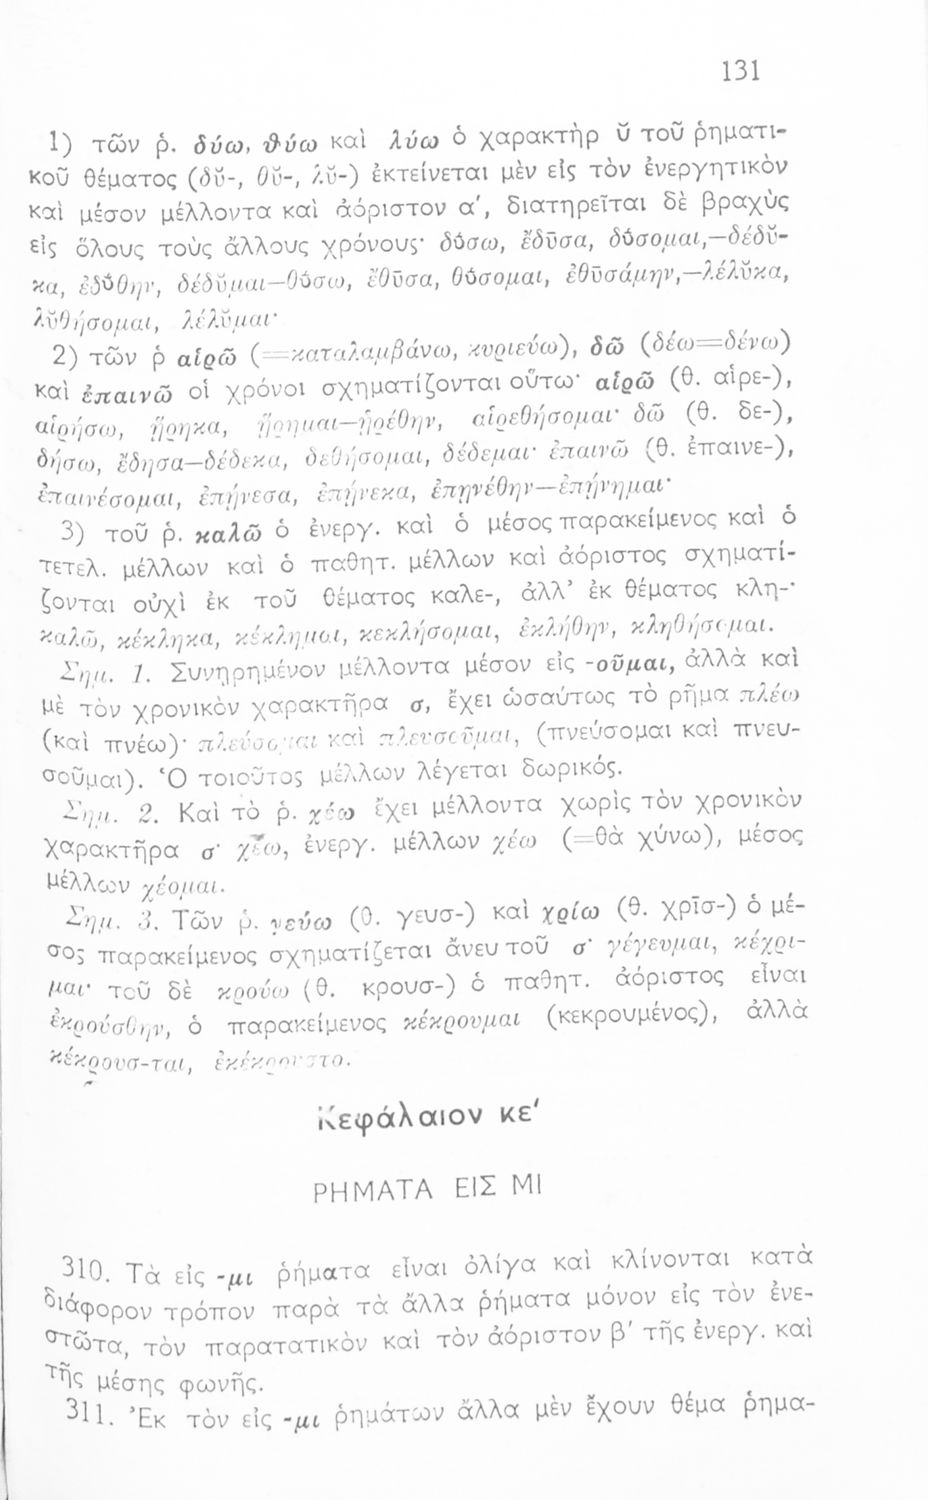 131
1) τῶν ῥ. δύω, θύω καὶ λύω ὁ χαρακτὴρ ῠ τοῦ ῥηματι-
κοῦ θέματος (δῠ-, θῠ-, λῠ-) ἐκτείνεται μὲν εἰς τὸν ἐνεργητικὸν
καὶ μέσον μέλλοντα καὶ ἀόριστον α', διατηρεῖται δὲ βραχὺς
εἰς ὅλους τοὺς ἄλλους χρόνους· δύσω, ἔδυσα, δύσομαι,—δέδῠ-
κα, ἐδύθην, δέδῠμαι—θύσω, ἔθῡσα, θύσομαι, ἐθῡσάμην,—λέλῠκα,
λῠθήσομαι, λέλῠμαι·
2) τῶν ῥ αἱρῶ (=καταλαμβάνω, κυριεύω), δῶ (δέω=δένω)
καὶ ἐπαινῶ οἱ χρόνοι σχηματίζονται οὕτω· αἱρῶ (θ. αἱρε-),
αἱρήσω, ᾕρηκα, ᾕρημαι—ᾑρέθην, αἱρεθήσομαι· δῶ (θ. δε-),
δήσω, ἔδησα—δέδεκα, δεθήσομαι, δέδεμαι· ἐπαινῶ (θ. ἐπαινε-),
ἐπαινέσομαι, ἐπήνεσα, ἐπήνεκα, ἐπηνέθην—ἐπήνημαι·
3) τοῦ ῥ. καλῶ ὁ ἐνεργ. καὶ ὁ μέσος παρακείμενος καὶ ὁ
τετελ. μέλλων καὶ ὁ παθητ. μέλλων καὶ ἀόριστος σχηματί-
ζονται οὐχὶ ἐκ τοῦ θέματος καλε-, ἀλλ' ἐκ θέματος κλη-·
καλῶ, κέκληκα, κέκλημαι, κεκλήσομαι, ἐκλήθην, κληθήσομαι.
Σημ. 1. Συνῃρημένον μέλλοντα μέσον εἰς -οῦμαι, ἀλλὰ καὶ
μὲ τὸν χρονικὸν χαρακτῆρα σ, ἔχει ὡσαύτως τὸ ρῆμα πλέω
(καὶ πνέω)· πλεύσομαι καὶ πλευσοῦμαι, (πνεύσομαι καὶ πνευ-
σοῦμαι). Ὁ τοιοῦτος μέλλων λέγεται δωρικός.
Σημ. 2. Καὶ τὸ ῥ. χέω ἔχει μέλλοντα χωρὶς τὸν χρονικὸν
χαρακτῆρα σ· χέω, ἐνεργ. μέλλων χέω (=θὰ χύνω), μέσος
μέλλων χέομαι.
Σημ. 3. Τῶν ῥ. γεύω (θ. γευσ-) καὶ χρίω (θ. χρῑσ-) ὁ μέ-
σος παρακείμενος σχηματίζεται ἄνευ τοῦ σ· γέγευμαι, κέχρι-
μαι· τοῦ δὲ κρούω (θ. κρουσ-) ὁ παθητ. ἀόριστος εἶναι
ἐκρούσθην, ὁ παρακείμενος κέκρουμαι (κεκρουμένος), ἀλλὰ
κέκρουσ-ται, ἐκέκρουστο.
Κεφάλαιον κε'
ΡΗΜΑΤΑ ΕΙΣ ΜΙ
310. Τὰ εἰς -μι ῥήματα εἶναι ὀλίγα καὶ κλίνονται κατὰ
διάφορον τρόπον παρὰ τὰ ἄλλα ῥήματα μόνον εἰς τὸν ἐνε-
στῶτα, τὸν παρατατικὸν καὶ τὸν ἀόριστον β' τῆς ἐνεργ. καὶ
τῆς μέσης φωνῆς.
311. Ἐκ τὸν εἰς -μι ῥημάτων ἄλλα μὲν ἔχουν θέμα ῥημα-